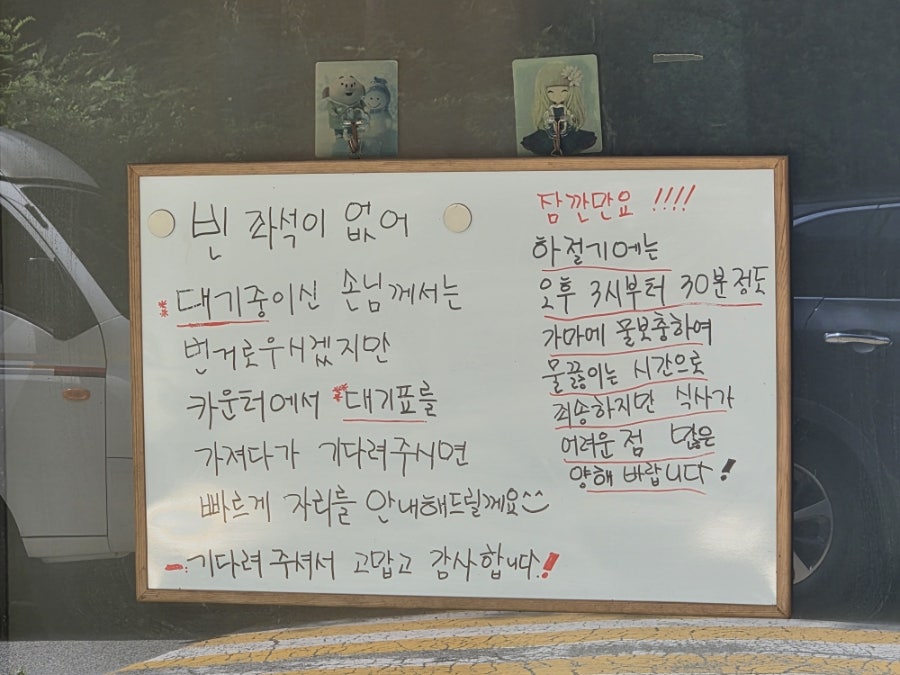 빈 좌석이 없어
*대기중이신 손님께서는
번거로우시겠지만
카운터에서 *대기표를
가져다가 기다려주시면
빠르게 자리를 안내해드릴께요^^
- 기다려주셔서 고맙고 감사합니다!
잠깐만요 !!!!
하절기에는
오후 3시부터 30분정도
가마에 물보충하여
물끓이는 시간으로
죄송하지만 식사가
어려운점 많은
양해 바랍니다!